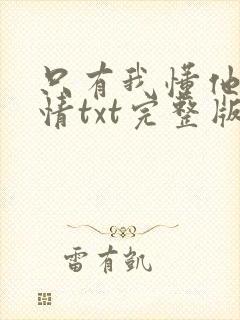 只有我懂他
情txt完整版
雷有凯